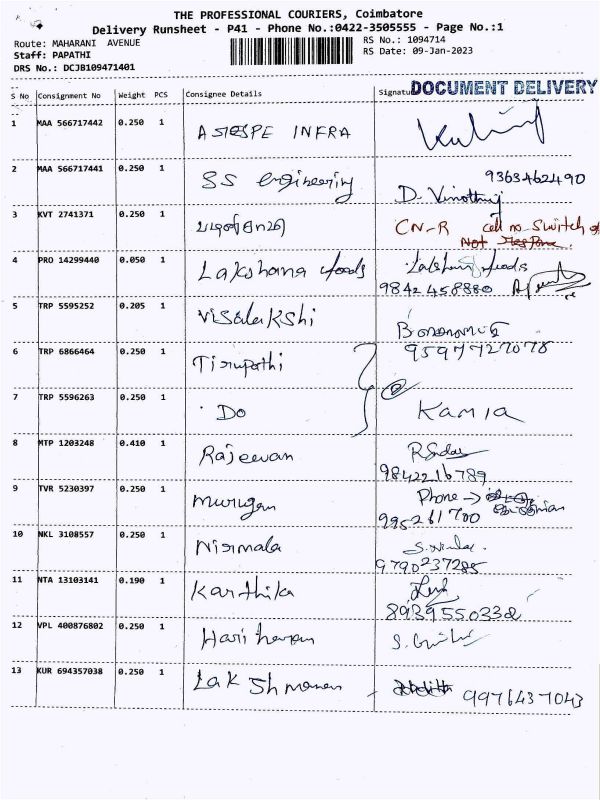 THE PROFESSIONAL COURIERS, Coimbatore
Delivery Runsheet - P41 - Phone No.:0422-3505555 - Page No.:1
Route: MAHARANI AVENUE
RS No.: 1094714
Staff: PAPATHI
RS Date: 09-Jan-2023
DRS No.: DCJB109471401
DOCUMENT DELIVERY
S No Consignment No Weight PCS Consignee Details Signatu
1 MAA 566717442 0.250 1 INFRA
2 MAA 566717441 0.250 1 SS engineering 9363462490
D. Vinothraj
3 KVT 2741371 0.250 1 CN-R cell no Switch
Not
4 PRO 14299440 0.050 1 Lakshana foods foods
9842458880
5 TRP 5595252 0.205 1 Visalakshi
6 TRP 6866464 0.250 1 Tirupathi 9597727078
7 TRP 5596263 0.250 1 Do Kamla
8 MTP 1203248 0.410 1 Rajeevan
9842216789
9 TVR 5230397 0.250 1 murugan Phone →
995261700
10 NKL 3108557 0.250 1 Nirmala
9790237285
11 NTA 13103141 0.190 1 Karthika
8939550332
12 VPL 400876802 0.250 1 Hariharan
13 KUR 694357038 0.250 1 Lakshmanan 9976437043